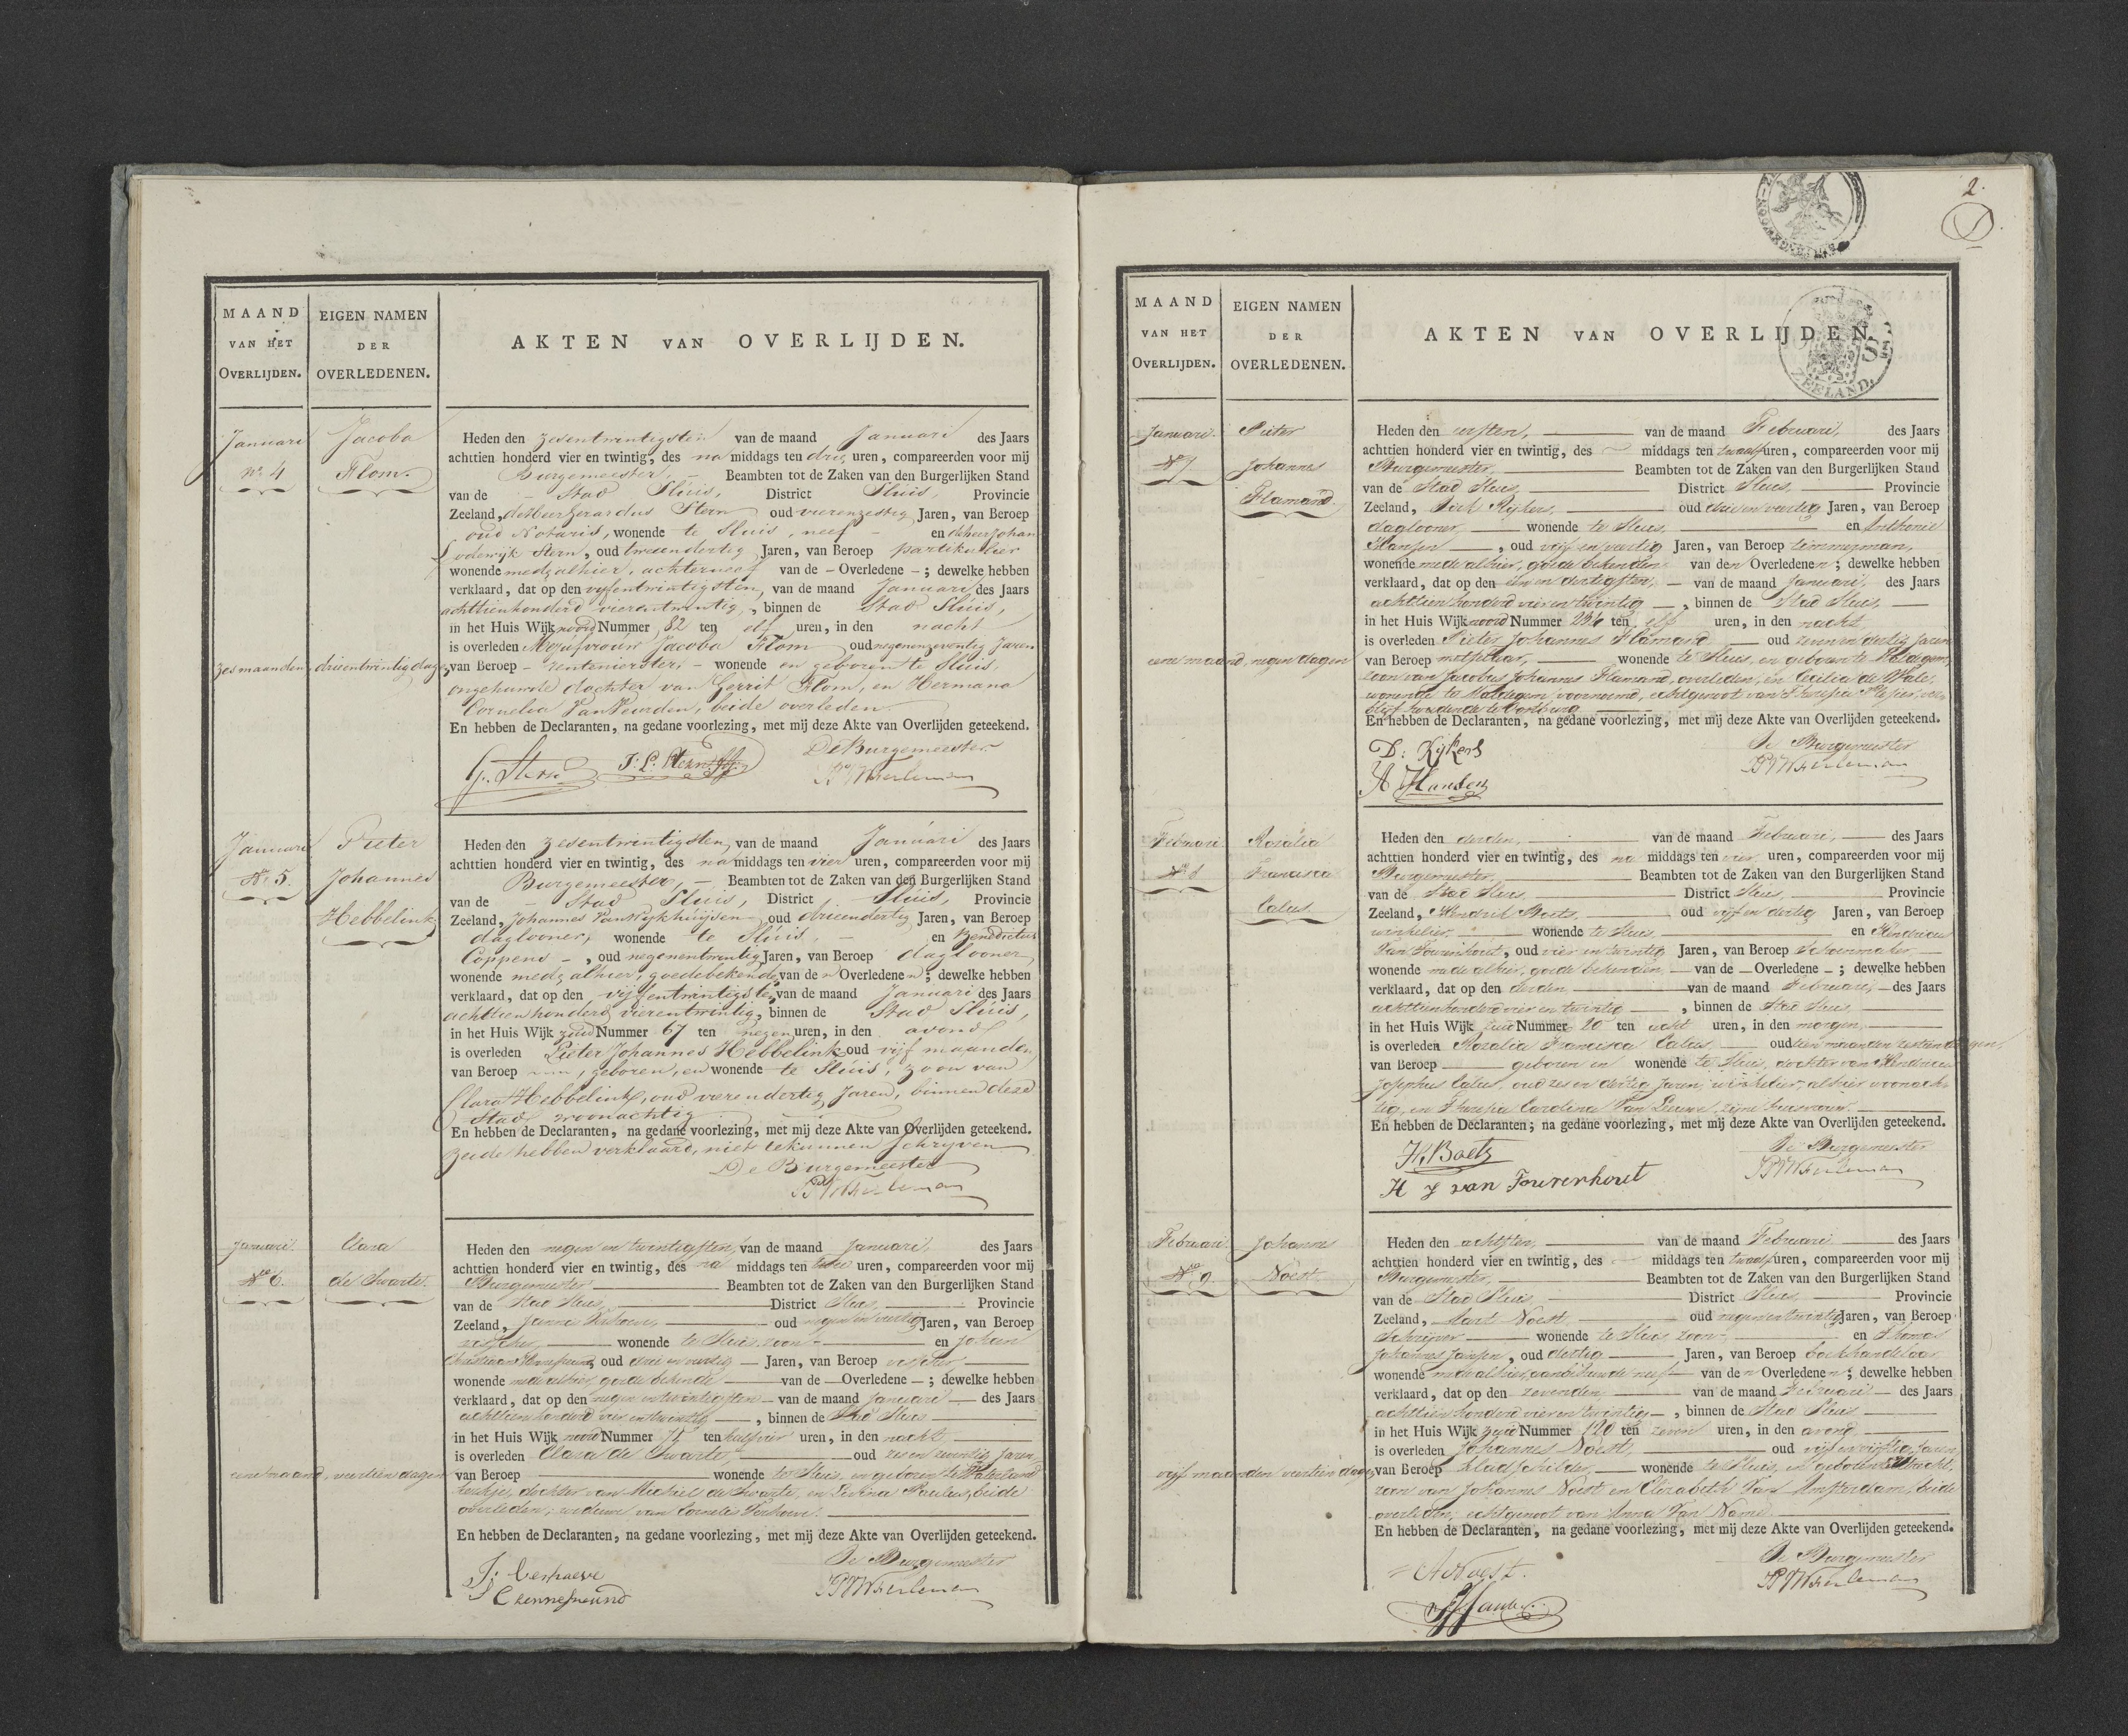 MAAND
VAN HET
OVERLIJDEN.
EIGEN NAMEN
DER
OVERLEDENEN.
AKTEN VAN OVERLIJDEN.
Januari
No. 4
Jacoba
Flom.
Heden den zesentwintigsten van de maand Januari des Jaars
achttien honderd vier en twintig, des na middags ten drie uren, compareerden voor mij
Burgemeester, Beambten tot de Zaken van den Burgerlijken Stand
van de - Stad Sluis, District Sluis, Provincie
Zeeland, de Heer Gerardus Stern oud vierenzestig Jaren, van Beroep
oud Notaris, wonende te Sluis, neef - en de heer Johan
Lodewijk Stern, oud tweeendertig Jaren, van Beroep partikulier
wonende mede alhier, achterneef van de - Overledene - ; dewelke hebben
verklaard, dat op den vyfentwintigsten, van de maand Januari des Jaars
achttienhonderd vierentwintig, binnen de Stad Sluis,
in het Huis Wijk noord Nummer 82 ten elf uren, in den nacht
is overleden Mejufvrouw Jacoba Flom oud negenenzeventig Jaren
zes maanden, drieentwintig dagen, van Beroep - rentenierster, - wonende en geboren te Sluis,
ongehuwde dochter van Gerrit Flom, en Hermana
Cornelia Van Neurden, beide overleden.
En hebben de Declaranten, na gedane voorlezing, met mij deze Akte van Overlijden geteekend.
G. Stern J: L: Stern
De Burgemeester
Januari
No. 5.
Pieter
Johannes
Hebbelink
Heden den zesentwintigsten, van de maand Januari des Jaars
achttien honderd vier en twintig, des na middags ten vier uren, compareerden voor mij
Burgemeester, - Beambten tot de Zaken van den Burgerlijken Stand
van de - Stad Sluis, District Sluis, Provincie
Zeeland, Johannes Van Wijkhuijsen oud drieendertig Jaren, van Beroep
daglooner, wonende te Sluis, - en Benedictus
Coppens - , oud negenentwintig Jaren, van Beroep daglooner,
wonende mede alhier, goedebekenden van den Overledenen; dewelke hebben
verklaard, dat op den vijfentwintigsten, van de maand Januari des Jaars
achttienhonderd vierentwintig, binnen de Stad Sluis,
in het Huis Wijk zuid Nummer 67 ten negen uren, in den avond
is overleden Pieter Johannes Hebbelink oud vijf maanden,
van Beroep , geboren, en wonende te Sluis, zoon van
Clara Hebbelink, oud vierendertig Jaren, binnen deze
Stad woonachtig
En hebben de Declaranten, na gedane voorlezing, met mij deze Akte van Overlijden geteekend.
Beide hebben verklaard, niet te kunnen schryven
De Burgemeester
Januari.
No 6.
Clara
de Swarte.
Heden den negen en twintigsten, van de maand Januari, des Jaars
achttien honderd vier en twintig, des na middags ten uren, compareerden voor mij
Burgemeester Beambten tot de Zaken van den Burgerlijken Stand
van de Stad Sluis, District Sluis, Provincie
Zeeland, oud negen en veertig Jaren, van Beroep
wonende te Sluis, zoon en Johan
Christiaan , oud drie en veertig Jaren, van Beroep
wonende mede alhier, goede bekende van de Overledene - ; dewelke hebben
verklaard, dat op den negen en twintigsten van de maand Januari des Jaars
achttien honderd vier en twintig , binnen de Stad Sluis
in het Huis Wijk noord Nummer 75 ten half vier uren, in den nacht
is overleden Clara de Swarte, oud zes en zeventig Jaren,
eene maand, veertien dagen van Beroep wonende te Sluis, en geboren te Waterland
kerkje, dochter van Michiel de Swarte, en Levina Paulus, beide
overleden; weduwe van Cornelis Verhoeve.
En hebben de Declaranten, na gedane voorlezing, met mij deze Akte van Overlijden geteekend.
De Burgemeester
2.
ZEELAND.
MAAND
VAN HET
OVERLIJDEN.
EIGEN NAMEN
DER
OVERLEDENEN.
AKTEN VAN OVERLIJDEN.
Januari.
No 7
Pieter
Johannes
Flamand.
Heden den eersten, van de maand Februari, des Jaars
achttien honderd vier en twintig, des middags ten twaalf uren, compareerden voor mij
Burgemeester, Beambten tot de Zaken van den Burgerlijken Stand
van de Stad Sluis, District Sluis, Provincie
Zeeland, Dirk Rijkers, oud drie en veertig Jaren, van Beroep
daglooner, wonende te Sluis, en Anthonie
Hansen , oud vijf en veertig Jaren, van Beroep timmerman,
wonende mede alhier, goede bekenden van den Overledenen; dewelke hebben
verklaard, dat op den een en dertigsten, van de maand Januari, des Jaars
achttien honderd vier en twintig , binnen de Stad Sluis,
in het Huis Wijk noord Nummer 236 ten elf uren, in den nacht,
is overleden Pieter Johannes Flamand oud zeven en dertig Jaren
eene maand, negen dagen van Beroep metselaar, wonende te Sluis, en geboren te Maldegem,
zoon van Jacobus Johannes Flamand, overleden, en Cecilia de Wale,
wonende te Maldegem voornoemd, echtgenoot van Theresia
En hebben de Declaranten, na gedane voorlezing, met mij deze Akte van Overlijden geteekend.
D: Rijkers
A Hansen
De Burgemeester
Februari
No 8
Rozalia
Francisca
Calus
Heden den derden, van de maand Februari, des Jaars
achttien honderd vier en twintig, des na middags ten vier uren, compareerden voor mij
Burgemeester, Beambten tot de Zaken van den Burgerlijken Stand
van de Stad Sluis District Sluis, Provincie
Zeeland, Hendrik Baets, oud vijf en dertig Jaren, van Beroep
winkelier, wonende te Sluis, en Hendricus
Van Tourenhout, oud vier en twintig Jaren, van Beroep schoenmaker,
wonende mede alhier, goede bekenden, van de Overledene - ; dewelke hebben
verklaard, dat op den derden van de maand Februari, des Jaars
achttienhonderd vier en twintig , binnen de Stad Sluis
in het Huis Wijk zuid Nummer 20 ten acht uren, in den morgen,
is overleden Rozalia Francisca Calus, oud tien maanden zestien dagen,
van Beroep geboren en wonende te Sluis, dochter van Hendricus
Josephus Calus, oud zes en dertig Jaren, winkelier, alhier woonach-
tig, en Theresia Carolina Van Leeuwe, zijne huisvrouw.
En hebben de Declaranten; na gedane voorlezing, met mij deze Akte van Overlijden geteekend.
H. Baets
H J van Tourenhout
De Burgemeester
Februari.
No 9.
Johannes
Noest.
Heden den achtsten, van de maand Februari des Jaars
achttien honderd vier en twintig, des middags ten twaalf uren, compareerden voor mij
Burgemeester, Beambten tot de Zaken van den Burgerlijken Stand
van de Stad Sluis, District Sluis, Provincie
Zeeland, Aart Noest, oud negenentwintig Jaren, van Beroep
Schrijver wonende te Sluis zoon, en Thomas
Johannes Jansen, oud dertig Jaren, van Beroep boekhandelaar
wonende mede alhier, aanbehuwde neef van den Overledenen; dewelke hebben
verklaard, dat op den zevenden van de maand Februari des Jaars
achttien honderd vier en twintig , binnen de Stad Sluis
in het Huis Wijk zuid Nummer 120 ten zeven uren, in den avond
is overleden Johannes Noest, oud vijf en vijftig Jaren,
vijf maanden veertien dagen, van Beroep kladschilder, wonende te Sluis, en geboren te Utrecht,
zoon van Johannes Noest en Elizabeth Van Amsterdam, beide
overleden, echtgenoot van Anna Van Name.
En hebben de Declaranten, na gedane voorlezing, met mij deze Akte van Overlijden geteekend.
A Noest.
De Burgemeester